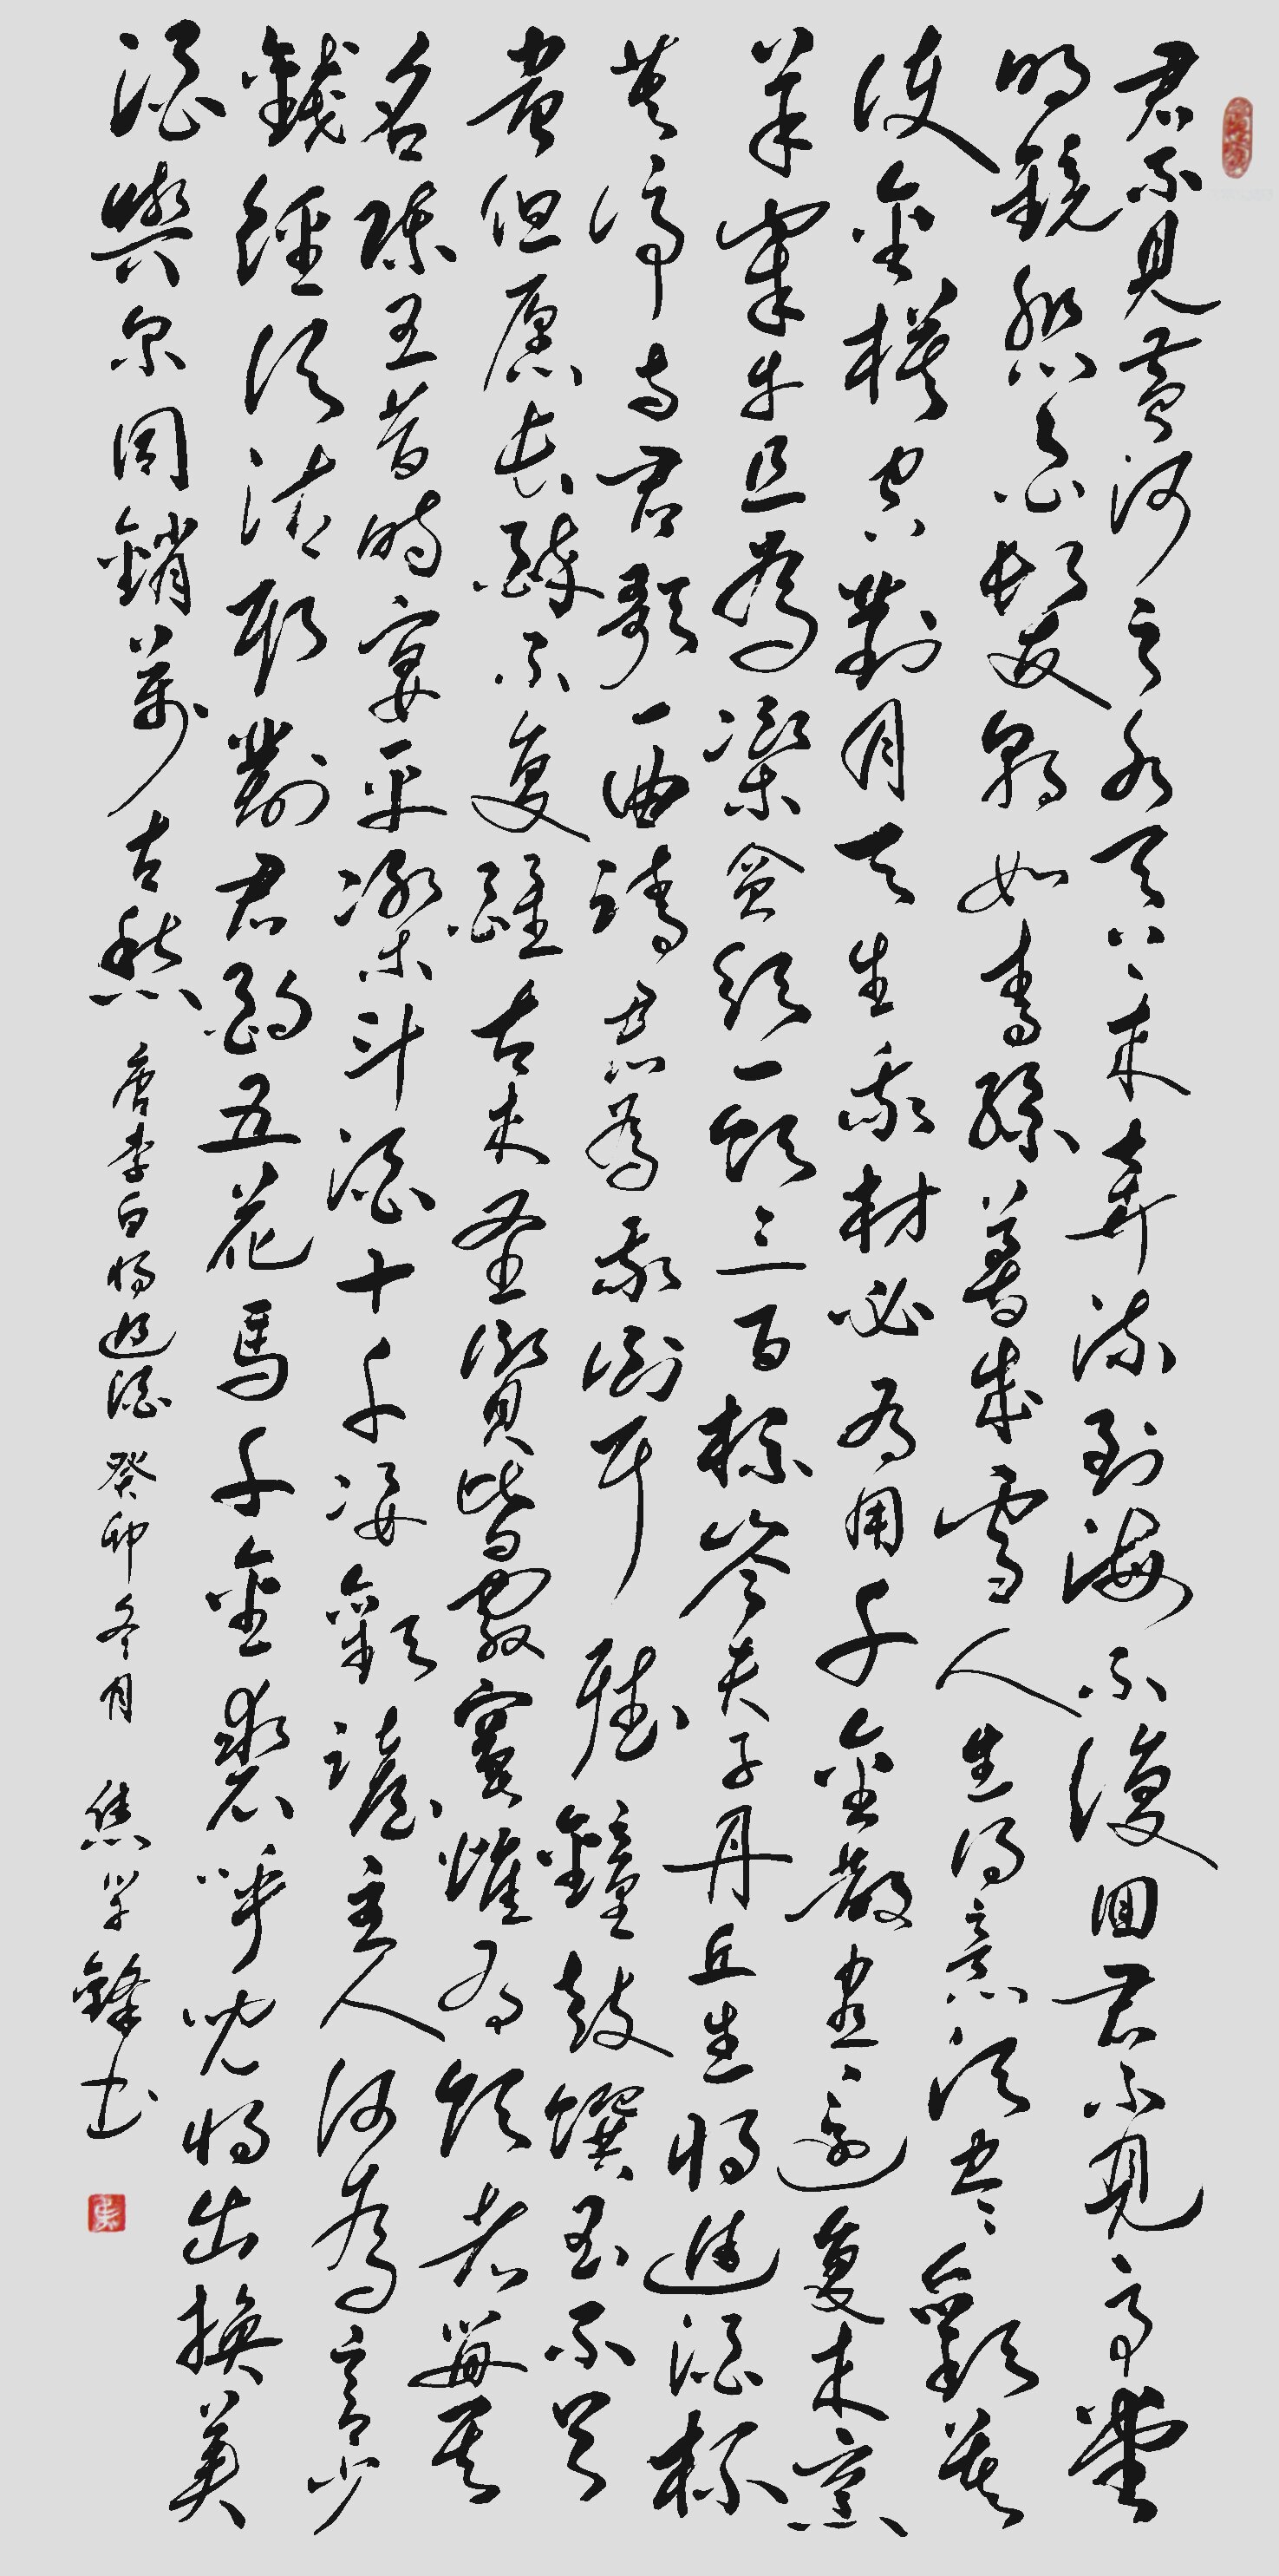 君不见黄河之水天上来奔流到海不復回君不见高堂
明镜悲白髮朝如青絲暮成雪人生得意须尽歡莫
使金樽空對月天生我材必有用千金散尽还复来烹
羊宰牛且為樂会須一飲三百杯岑夫子丹丘生将進酒杯
莫停与君歌一曲請君為我倾耳聽鐘鼓馔玉不足
贵但愿长醉不复醒古来圣賢皆寂寞惟有饮者留其
名陈王昔时宴平樂斗酒十千恣歡謔主人何為言少
錢径须沽取對君酌五花馬千金裘呼児将出換美
酒與尔同銷萬古愁 唐李白将进酒 癸卯冬月 焦学鋒书
焦